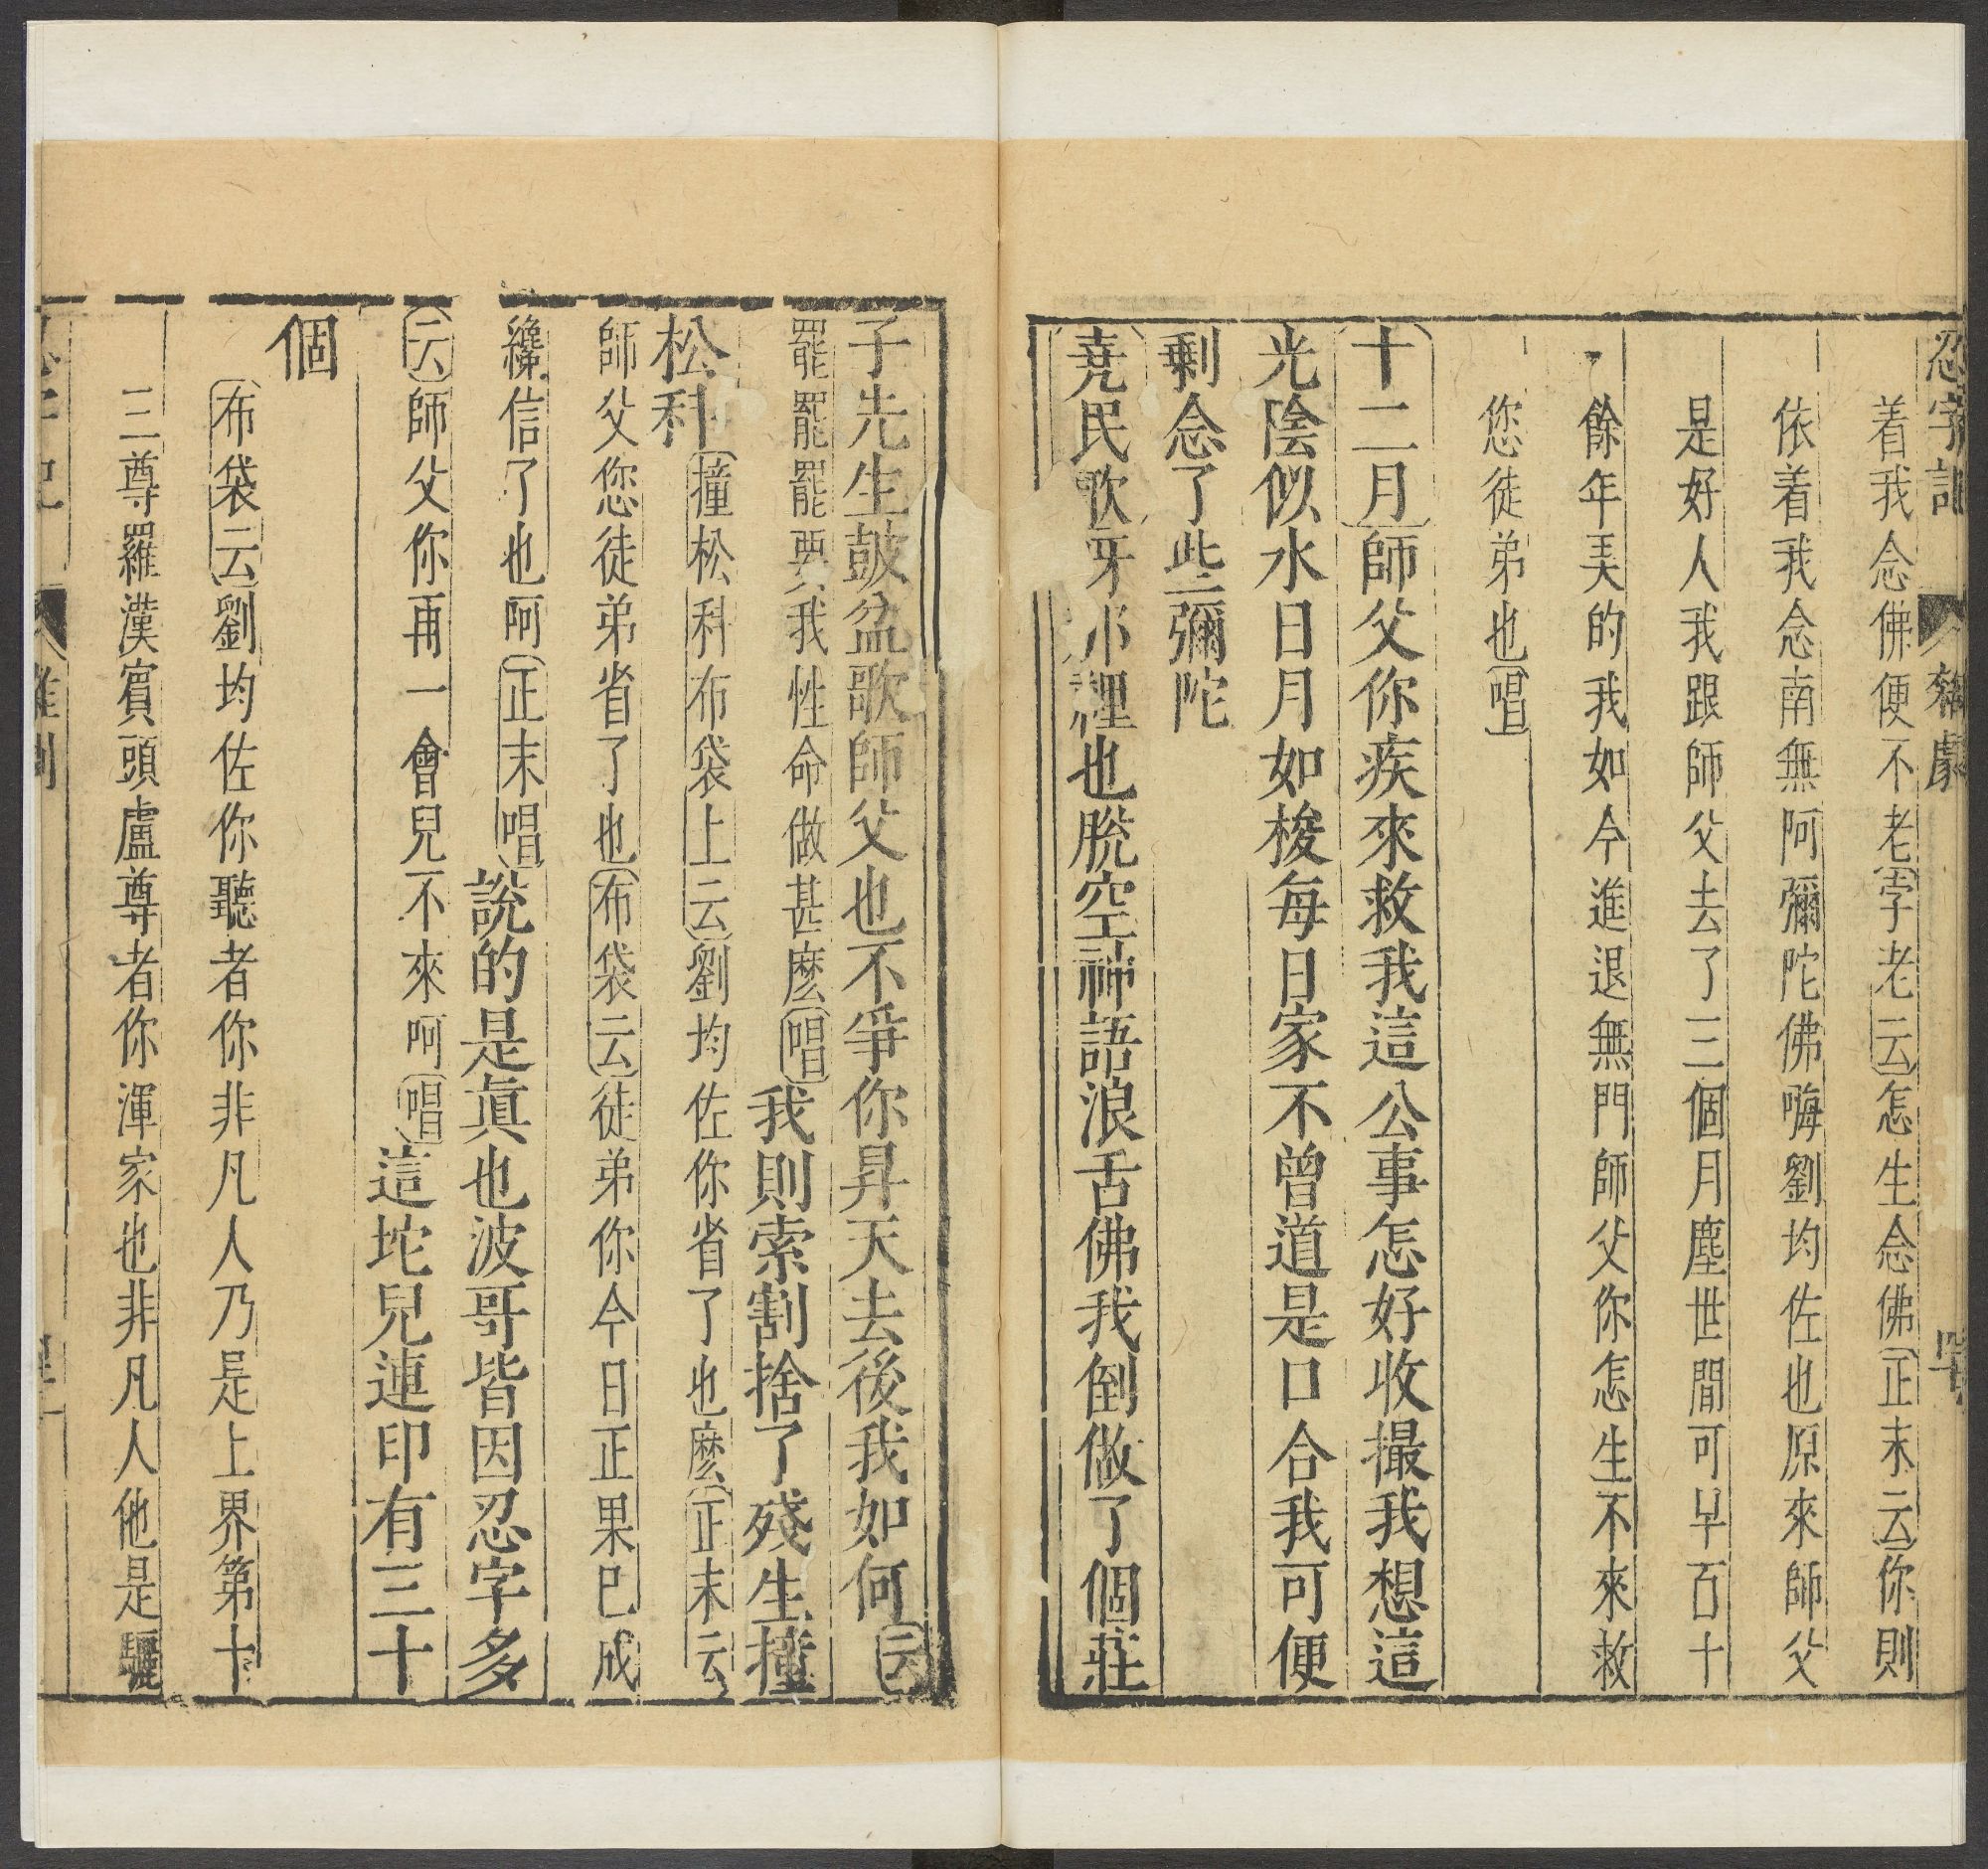 忍字記 雜劇
着我念佛便不老孛老云怎生念佛正末云你則
依着我念南無阿彌陀佛嗨劉均佐也原來師父
是好人我跟師父去了三個月塵世間可早百十
餘年光的我如今進退無門師父你怎生不來救
您徒弟也唱
十二月師父你疾來救我這公事怎好收撮我想這
光陰似水日月如梭每日家不曾道是口合我可便
剩念了些彌陀
堯民歌呀那裡也脫空神語浪舌佛我倒做了個莊
子先生鼓盆歌師父也不爭你昇天去後我如何云
罷罷罷要我性命做甚麽唱我則索割捨了殘生撞
松科撞松科布袋上云劉均佐你省了也麽正末云
師父您徒弟省了也布袋云徒弟你今日正果已成
纔信了也呵正末唱說的是眞也波哥皆因忍字多
云師父你再一會兒不來呵唱這坨兒連印有三十
個
布袋云劉均佐你聽者你非凡人乃是上界第十
三尊羅漢賓頭盧尊者你渾家也非凡人他是驪